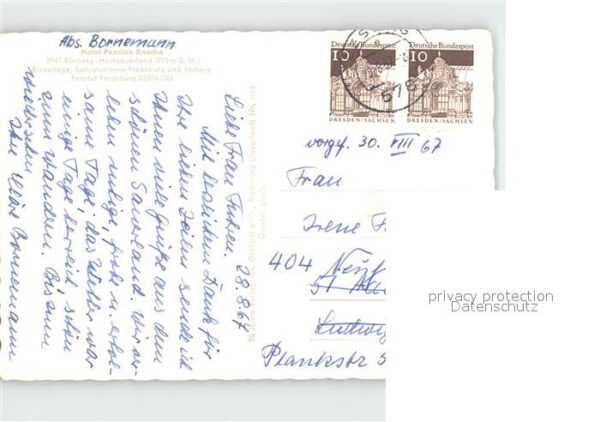 Abs. Bornemann
Hotel Pension Knoche
5947 Rimberg - Hochsauerland (713 m ü. M.)
Einzellage, Bahnstationen Fredeburg und Bestwig
Fernruf Fredeburg (02974) 545
28.8.67
Liebe Frau
Mit herzlichem Dank für
Ihre lieben Zeilen sende ich
Ihnen viele Grüße aus dem
schönen Sauerland. Wir ver-
leben ruhige, frohe u. erhol-
same Tage, das Wetter war
einige Tage herrlich schön
zum Wandern. Bis zum
Wiedersehen
Ihre Bornemann
Deutsche Bundespost
10
DRESDEN/SACHSEN
Deutsche Bundespost
10
DRESDEN/SACHSEN
vorgef. 30. VIII 67
Frau
Irene F
404 Neuß
51
Ludwig
Plankstr 5
privacy protection
Datenschutz